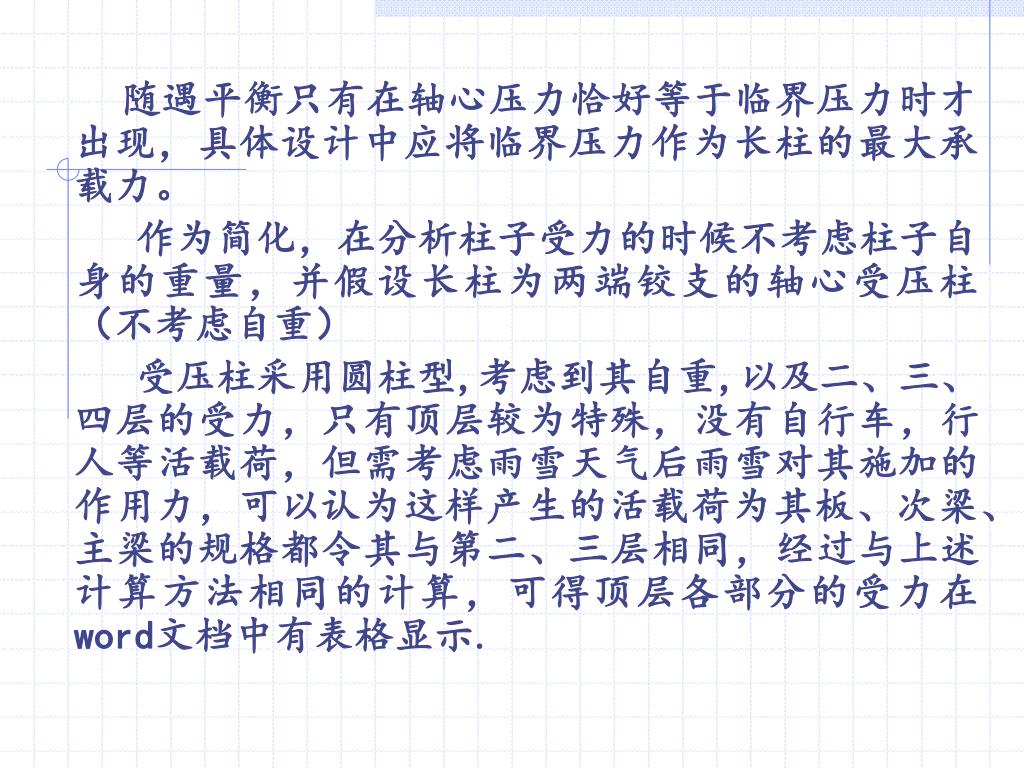 随遇平衡只有在轴心压力恰好等于临界压力时才
出现，具体设计中应将临界压力作为长柱的最大承
载力。
作为简化，在分析柱子受力的时候不考虑柱子自
身的重量，并假设长柱为两端铰支的轴心受压柱
（不考虑自重）
受压柱采用圆柱型,考虑到其自重,以及二、三、
四层的受力，只有顶层较为特殊，没有自行车，行
人等活载荷，但需考虑雨雪天气后雨雪对其施加的
作用力，可以认为这样产生的活载荷为其板、次梁、
主梁的规格都令其与第二、三层相同，经过与上述
计算方法相同的计算，可得顶层各部分的受力在
word文档中有表格显示.